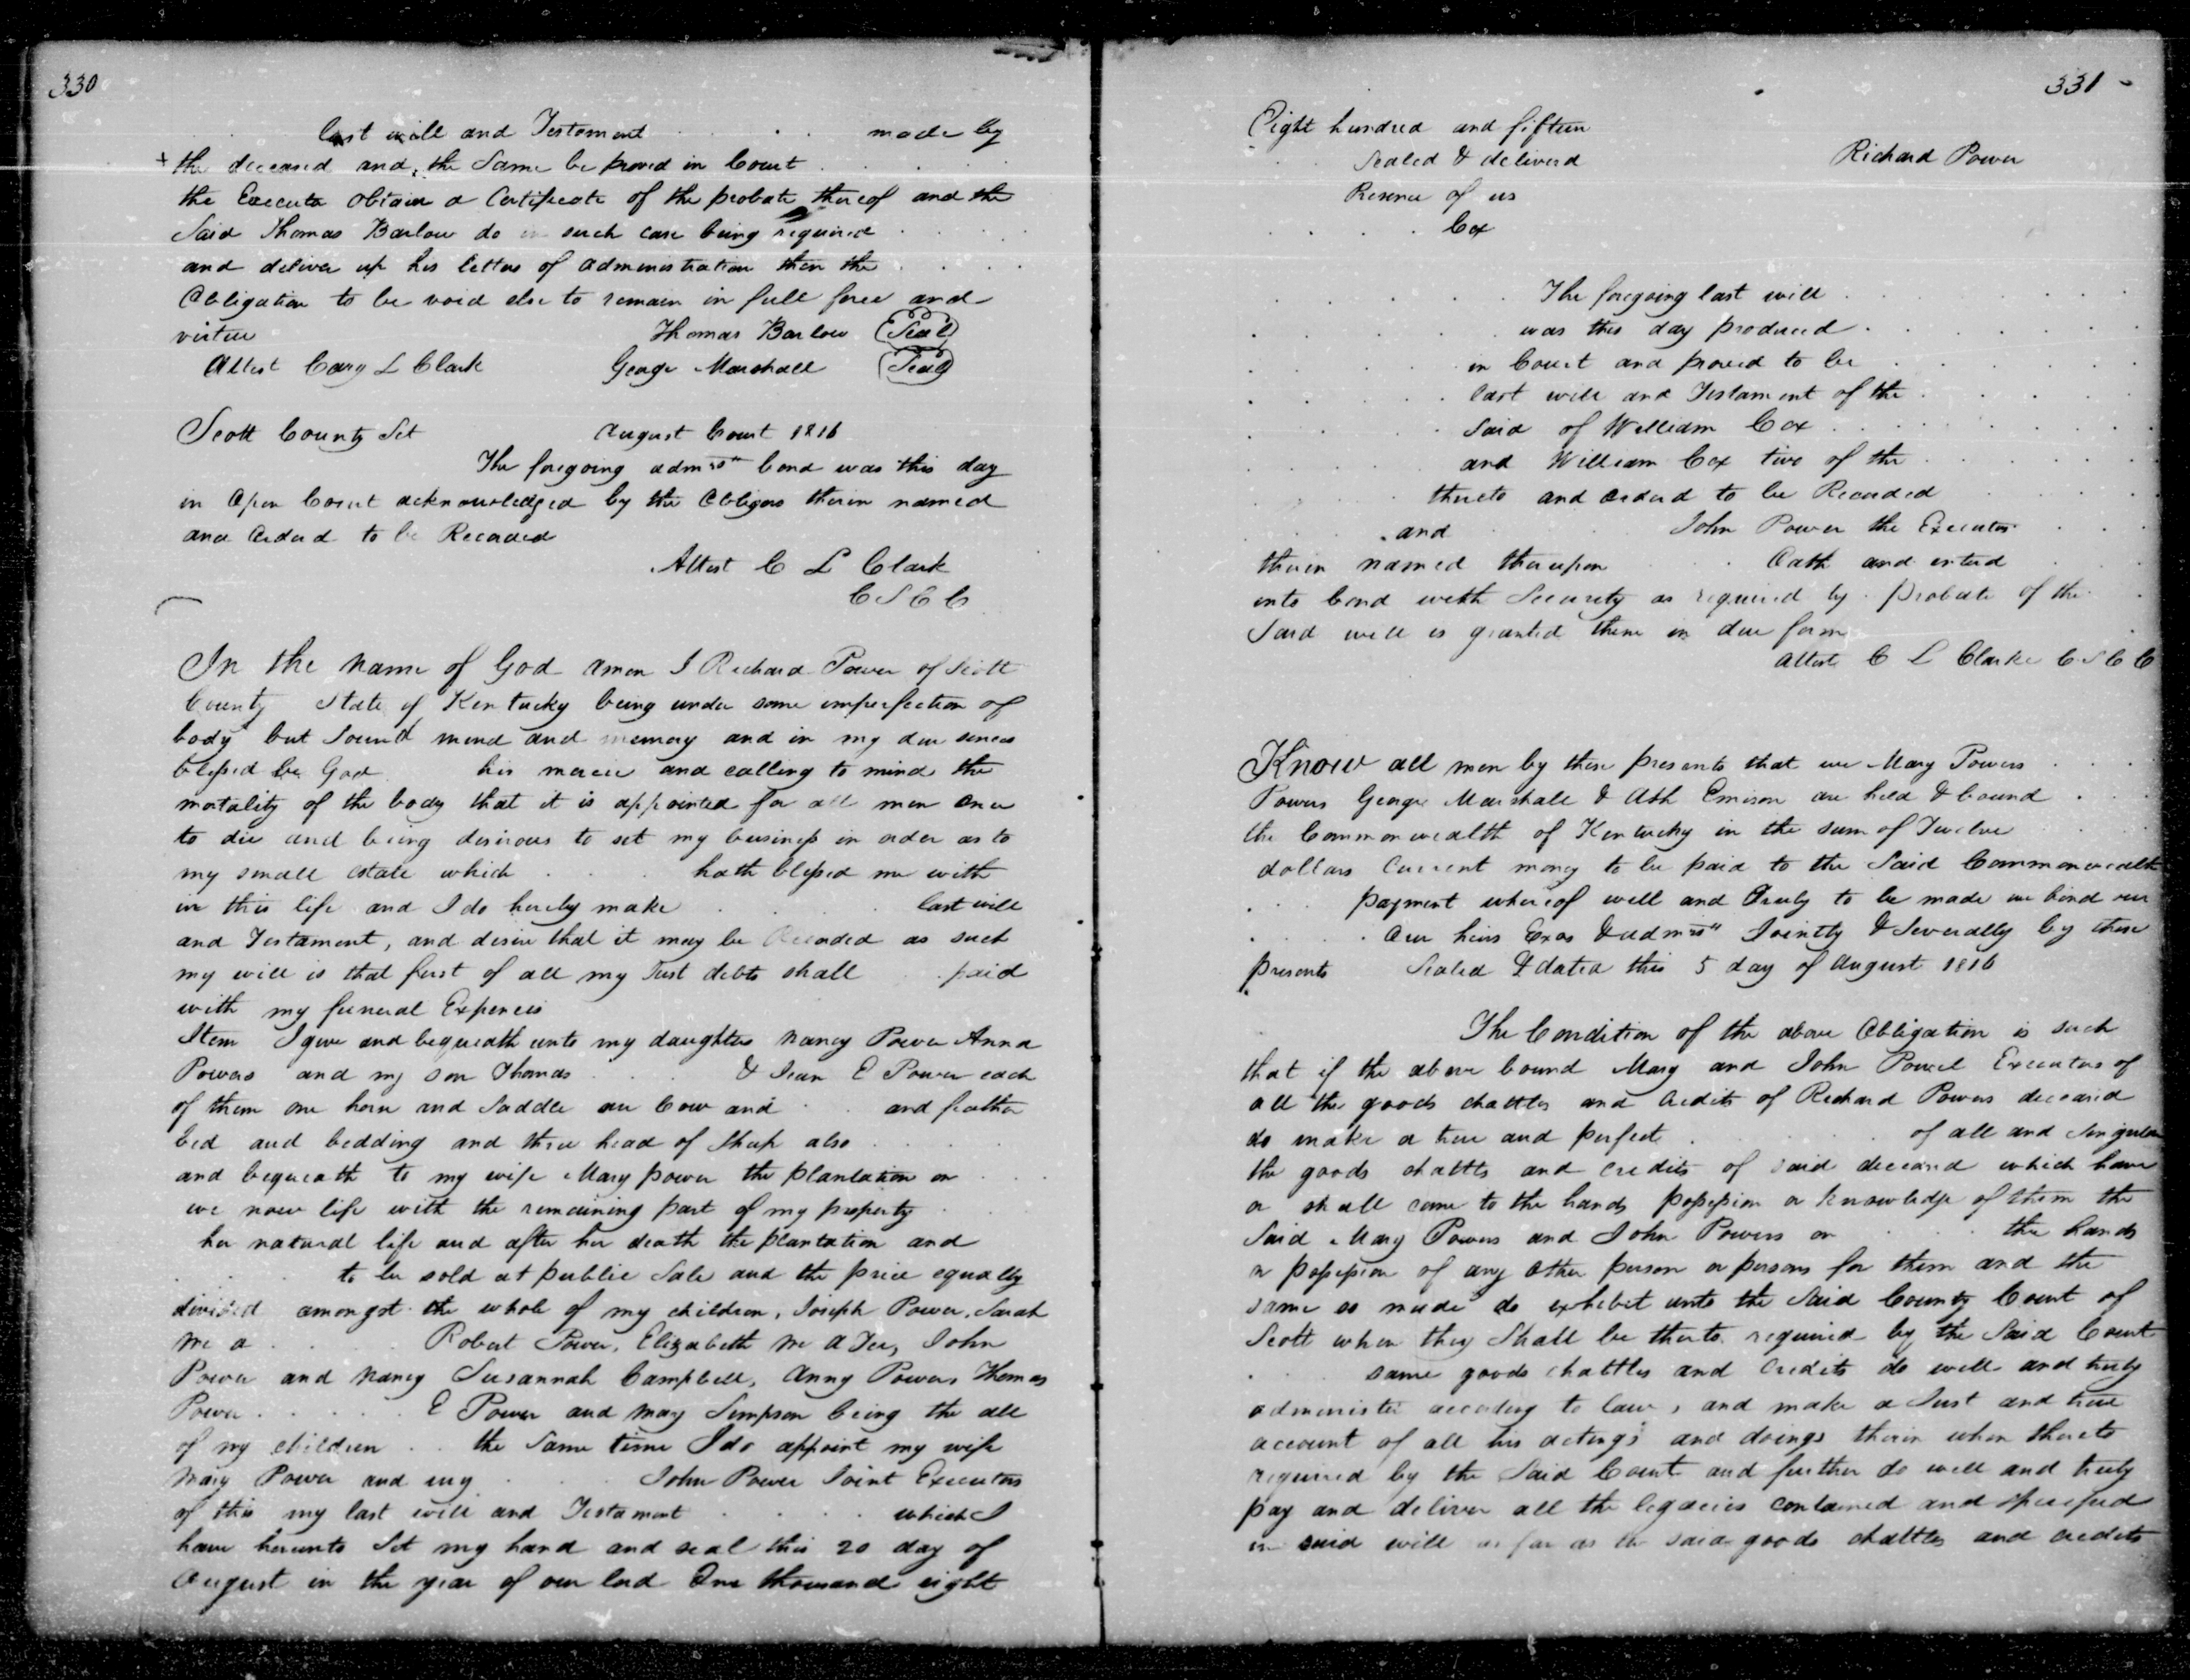 330
last will and Testament . . . made by
+ the deceased and, the Same be proved in Court . . . .
the Executor obtain a Certificate of the probate thereof and the
Said Thomas Barlow do in such case being required . . . .
and deliver up his letters of administration then the . . . .
Obligation to be void else to remain in full force and
virtue Thomas Barlow (Seal)
Attest Cary L Clark George Marshall (Seal)
Scott County Sct August Court 1816
The foregoing bond was this day
in Open Court acknowledged by the Obligors therin named
and Orderd to be Recorded
Attest C L Clark
C S C C
In the name of God amen I Richard Power of Scott
County State of Kentucky being under some imperfection of
body but Sound mind and memory and in my due sences
blessed be God his mercie and calling to mind the
mortality of the body that it is appointed for all men once
to die and being desirous to set my business in order as to
my small estate which . . . hath blessed me with
in this life and I do hereby make . . . last will
and Testament, and desire that it may be Recorded as such
my will is that first of all my Just debts shall paid
with my funeral Expences
Item I give and bequeath unto my daughters Nancy Power Anna
Powers and my son Thomas . . & Jean E Power each
of them one horse and Saddle one Cow and . . and feather
bed and bedding and three head of Sheep also . . . .
and bequeath to my wife Mary power the plantation on . . .
we now life with the remaining part of my property .
her natural life and after her death the plantation and
. . . to be sold at public Sale and the price equally
divided amongst the whole of my children, Joseph Power, Sarah
Mc a . . . . Robert Power, Elizabeth Mc a Tee, John
Power and Nancy Susannah Campbell, Anny Powers Thomas
Power . . . . . E Power and Mary Simpson being the all
of my children . . the Same time I do appoint my wife
Mary Power and my . . . John Power Joint Executors
of this my last will and Testament . . . . which I
have hereunto Set my hand and seal this 20 day of
August in the year of our lord One thousand eight
331
Eight hundred and fifteen
Sealed & deliverd Richard Power
Resence of us
. . . . Cox
The foregoing last will . . . .
was this day produced . . . .
in Court and proved to be . . . .
last will and Testament of the . . . .
Said of William Cox . . . .
and William Cox two of the . . . .
thereto and Orderd to be Recorded
. and John Power the Executor
therin named thereupon . . Oath and enterd
into bond with Security as required by . probate of the
Said will is granted them in due form
Attest C L Clarke C S C C
Know all men by these presents that we Mary Powers . . . .
Powers George Marshall & Ash Emison are held & bound . . .
the Commonwealth of Kentucky in the sum of Twelve
dollars Current money to be paid to the Said Commonwealth
. . . payment whereof well and Truly to be made we bind our
. . . . Our heirs Exos Jointly & Severally by these
presents Sealed & dated this 5 day of August 1816
The Condition of the above Obligation is such
that if the above bound Mary and John Powel Executors of
all the goods chattles and Credits of Richard Powers deceased
do make a true and perfect . . . . of all and Singular
the goods chattles and credits of said deceasd which have
or shall come to the hands possession or knowledge of them the
Said Mary Powers and John Powers or . . . the hands
or possession of any Other person or persons for them and the
same so made do exhibet unto the Said County Court of
Scott when they Shall be thereto required by the Said Court
. . . same goods chattles and Credits do well and truly
administer according to law, and make a Just and true
account of all his actings and doings therin when thereto
required by the Said Court and further do well and truly
pay and deliver all the legacies contained and specified
in said will as far as the said goods chattles and credits